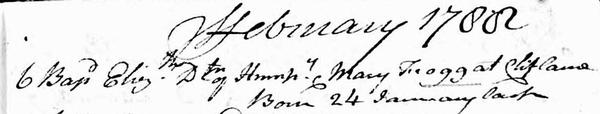 February 1788
6 Bapd Elizth Dtr of Humphy & Mary Froggat Cliflane
Born 24 January last